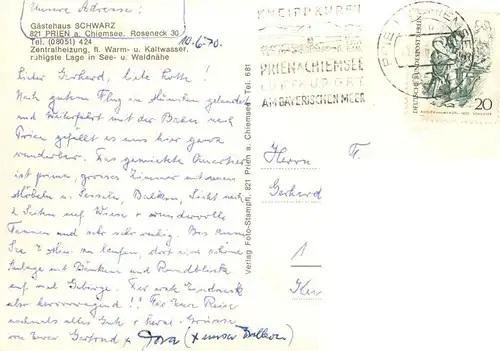 Unsere Adresse:
Gästehaus SCHWARZ
821 PRIEN a. Chiemsee, Roseneck 30
Tel. (08051) 424
Zentralheizung, fl. Warm- u. Kaltwasser,
ruhigste Lage in See- u. Waldnähe
10.6.70.
Lieber Gerhard, liebe Lotte!
Nach gutem Flug in München gelandet
und Weiterfahrt mit der Bahn nach
Prien gefällt es uns hier ganz
wunderbar. Das gemietete Quartier
ist prima, grosses Zimmer mit neuen
Möbeln u. Sesseln, Balkon, Sicht nach
2 Seiten auf Wiese + wundervolle
Tannen und sehr sehr ruhig. Bis zum
See zu laufen, dort eine schöne
Anlage mit Bänken und Rundblick
auf und Gebirge. Der erste Eindruck
also hervorragend!! Für Eure Reise
nochmals alles Gute + herzl. Grüsse
von Eurer Gertrud + Dora (+ unser Balkon)
Verlag Foto-Stampfl, 821 Prien a. Chiemsee - Tel. 681
KNEIPPKUREN
PRIEN A CHIEMSEE
LUFTKURORT
AM BAYERISCHEN MEER
PRIEN A CHIEMSEE
DEUTSCHE BUNDESPOST BERLIN
20
Herrn F.
Gerhard
1